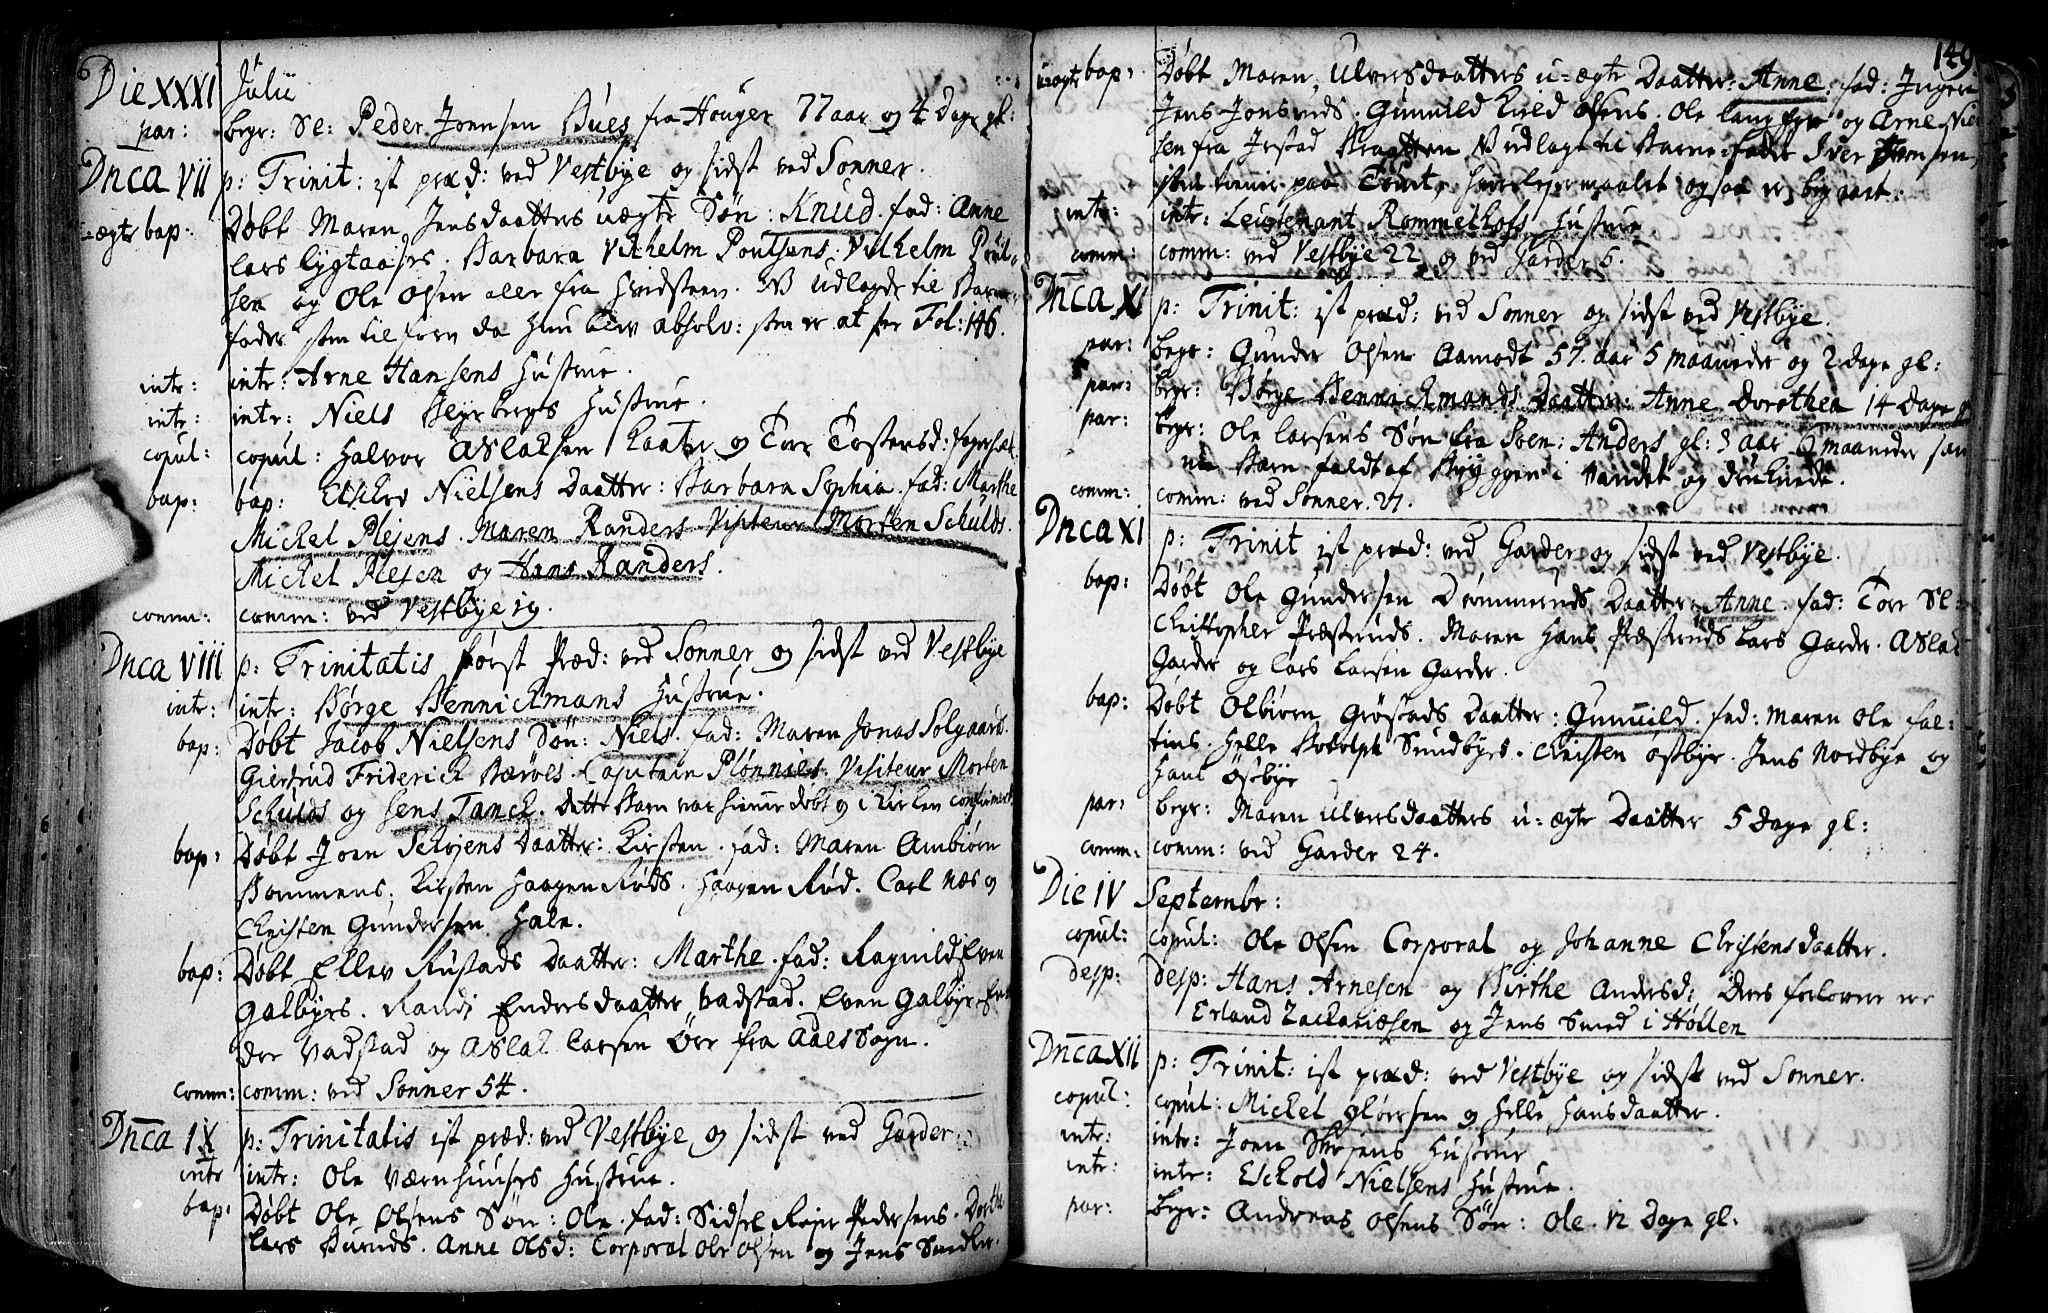 Die XXXI Julii
par: begr: Sl: Peder Joensen Bues fra Houger 77 aar og 4 Dage gl:
Dnca VII p: Trinit: ist præd: ved Vestbÿe og sidst ved Sonner.
u-ægte bap: Døbt Maren Jensdaatters uægte Søn: Knud. fad: Anne
Lars . Barbara Vilhelm Poulsens. Vilhelm Poul-
sen og Ole Olsen aller fra Hvidsteen. NB Udlagde til Barne
fader som tilforn da hun blev absolv: som er at see Fol: 146.
intr: intr: Arne Hansens Hustrue.
intr: intr: Niels Hustrue.
copul: copul: Halvor Aslaksen og Torr Tostensd:
bap: bap: Nielsens Daatter: Barbara Sophia. fad: Marthe
Michel Plejens. Maren Randers. Visiteur Morten Schulds.
Michel Plejen og Hans Randers.
comm: comm: ved Vestbÿe 19.
Dnca VIII p: Trinitatis først Præd: ved Sonner og sidst ved Vestbÿe
intr: intr: Børge Bennichmans Hustrue.
bap: Døbt Jacob Nielsens Søn: Niels. fad: Maren Jonas Solgaards.
Giertrud Friderich Bærøes. Capitain Plønnies. Visiteur Morten
Schulds og Jens Tanck. Dette Barn var hiemme døbt og i Kirken confirmert
bap: Døbt Joen Daatter: Kirsten. fad: Maren Ambiørn
Bommens. Kirsten Haagen Røds. Haagen Rød. Carl Næs og
Christen Gundersen Hale.
bap: Døbt Ellev Rustads Daatter: Marthe. fad: Ragnild Even
Galbÿes. Randi Endersdaatter Vadstad. Even Galbÿe.
der Vadstad og Aslak Larsen Ørr fra Aaes Sogn.
comm: comm: ved Sonner 54.
Dnca IX p: Trinitatis ist præd: ved Vestbÿe og sidst ved Garder
intr intr: Ole Hustrue.
bap: Døbt Ole Olsens Søn: Ole. fad: Sidsel Pedersens. Dorthe
Lars . Anne Olsd: Corporal Ole Olsen og Jens
149.
u-ægte bap: Døbt Maren Ulversdaatters u-ægte Daatter: Anne. fad: Ingeri
Jens . Gunuild Olsens. Ole og Arne Niel
sen fra Udlagt til Barne-fader Iver
paa Tourt, Leyermaalet ogsaa er begaaet:
intr: intr: Leutenant Rommelhofs Hustrue
comm: comm: ved Vestbÿe 22 og ved Garder 6.
Dnca X p: Trinit: ist præd: ved Sonner og sidst ved Vestbÿe.
par: begr: Gunder Olsen Aamodt 57. aar 5 maaneder og 2 Dage gl:
par: begr: Børge Bennichmands Daatter: Anne Dorothea 14 Dage gl
par: begr: Ole Larsens Søn fra Soen: Anders gl: 3 aar 6 maaneder
Barn faldt af Bryggen i Vandet og druknede.
comm: comm: ved Sonner. 27.
Dnca XI p: Trinit ist præd: ved Garder og sidst ved Vestbÿe.
bap: Døbt Ole Gundersen Daatter: Anne. fad: Torr Sl:
Christopher Præsteruds. Maren Hans Præsteruds Lars Garder. Aslak
Garder og Lars Larsen Garder.
bap: Døbt Olbiørn Grøstads Daatter: Gunnild. fad: Maren Ole Fal-
tins. Helle Rodolph Sundbÿes. Christen Østbÿe. Jens Nordbÿe og
Hans Østbÿe
par: begr: Maren Ulversdaatters u-ægte Daatter 5 Dage gl:
comm: comm: ved Garder 24.
Die IV Septembr:
copul: copul: Ole Olsen Corporal og Johanne Christensdaatter.
desp: desp: Hans Arnesen og Birthe Andersd: Deres forlovere ere
Erland Zachariæsen og Jens Smed i Hollen
Dnca XII p: Trinit: ist præd: ved Vestbÿe og sidst ved Sonner.
copul: copul: Michel Gloersen og Helle Hansdaatter.
intr: intr: Joen Hustrue
intr: intr: Eschold Nielsens Hustrue.
par: begr: Andreas Olsens Søn: Ole. 12 Dage gl: